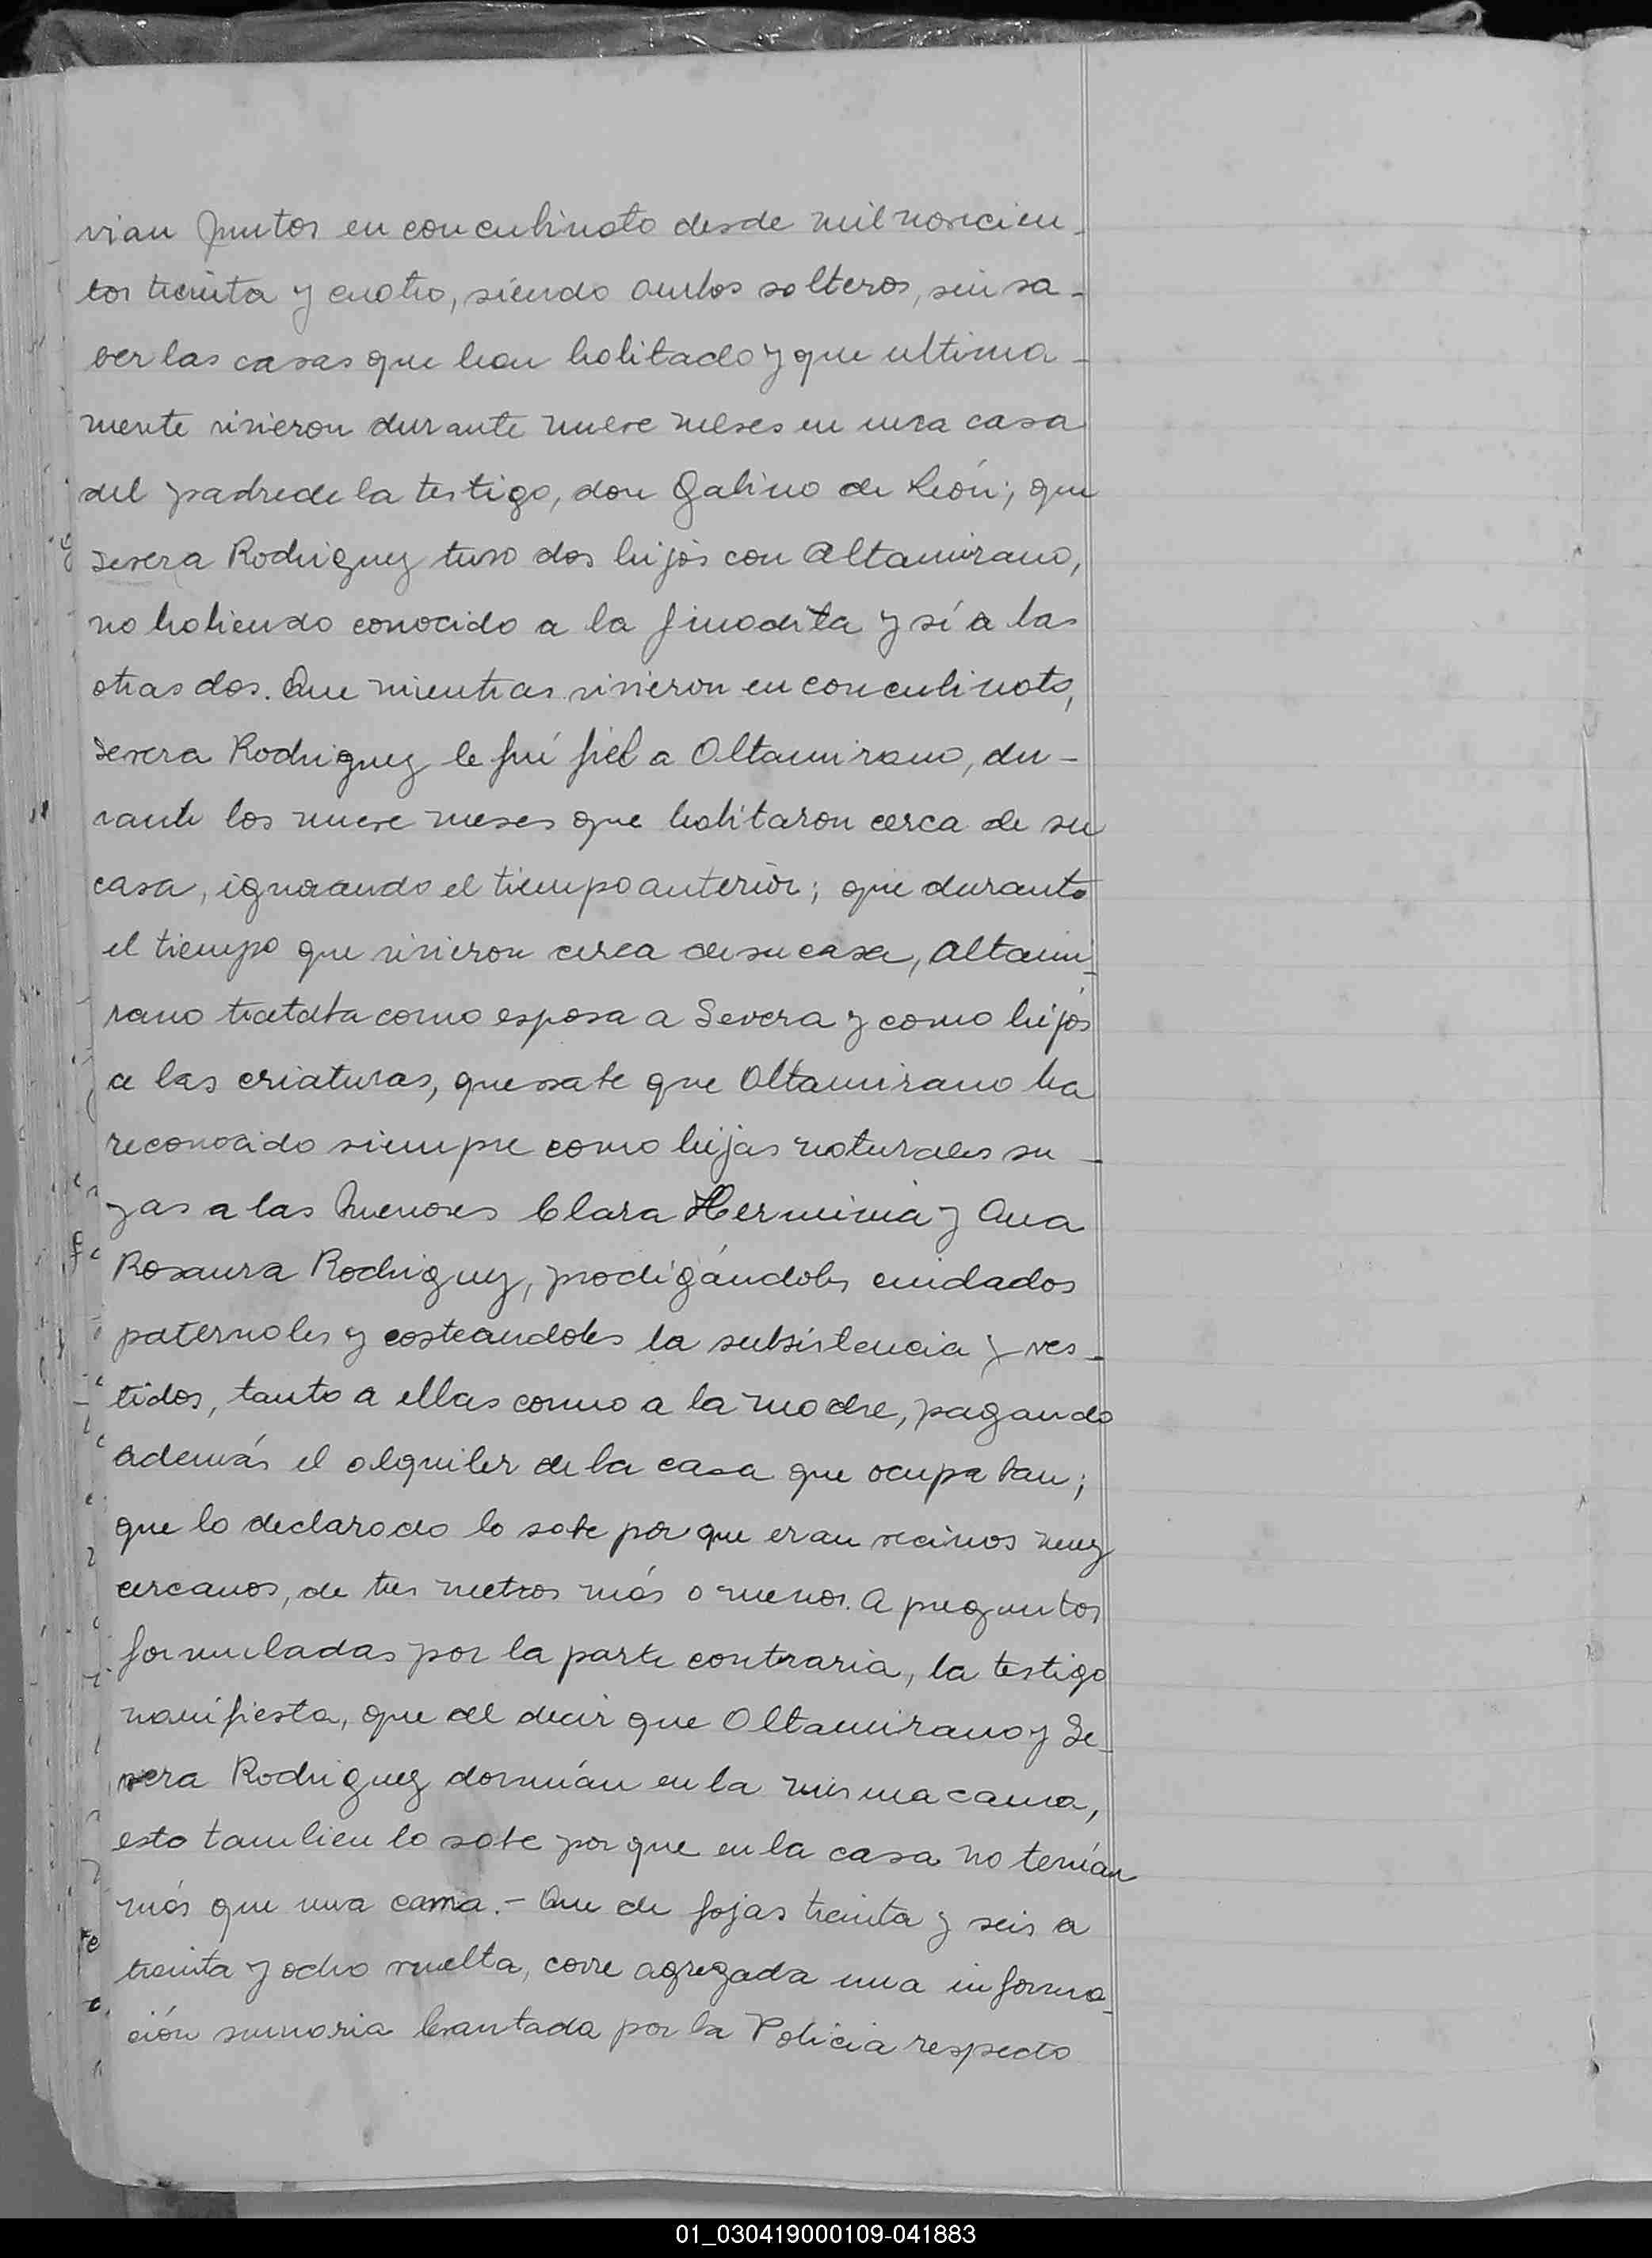 vian juntos en concubinato desde mil novecien-
tos treinta y cuatro, siendo ambos solteros, sin sa-
ber las casas que han habitado y que ultima-
mente vivieron durante nueve meses en una casa
del padre de la testigo, don Gabino de León; que
Severa Rodriguez tuvo dos hijos con Altamirano,
no habiendo conocido a la finadita y sí a las
otras dos. Que mientras vivieron en concubinato,
Severa Rodriguez le fué fiel a Altamirano, du-
rante los nueve meses que habitaron cerca de su
casa, ignorando el tiempo anterior; que durante
el tiempo que vivieron cerca de su casa, Altami-
rano trataba como esposa a Severa y como hijos
a las criaturas, que sabe que Altamirano ha
reconocido siempre como hijas naturales su-
yas a las menores Clara Herminia y Ana
Rosaura Rodriguez, prodigándoles cuidados
paternales y costeandoles la subsistencia y ves-
tidos, tanto a ellas como a la madre, pagando
además el alquiler de la casa que ocupaban;
que lo declarado lo sabe por que eran vecinos muy
cercanos, de tres metros más o menos. A preguntas
formuladas por la parte contraria, la testigo
manifiesta, que al decir que Altamirano y Se-
vera Rodriguez dormían en la misma cama,
esto tambien lo sabe por que en la casa no tenían
más que una cama.- Que de fojas treinta y seis a
treinta y ocho vuelta, corre agregada una informa-
ción sumaria levantada por la Policia respecto
01_030419000109-041883